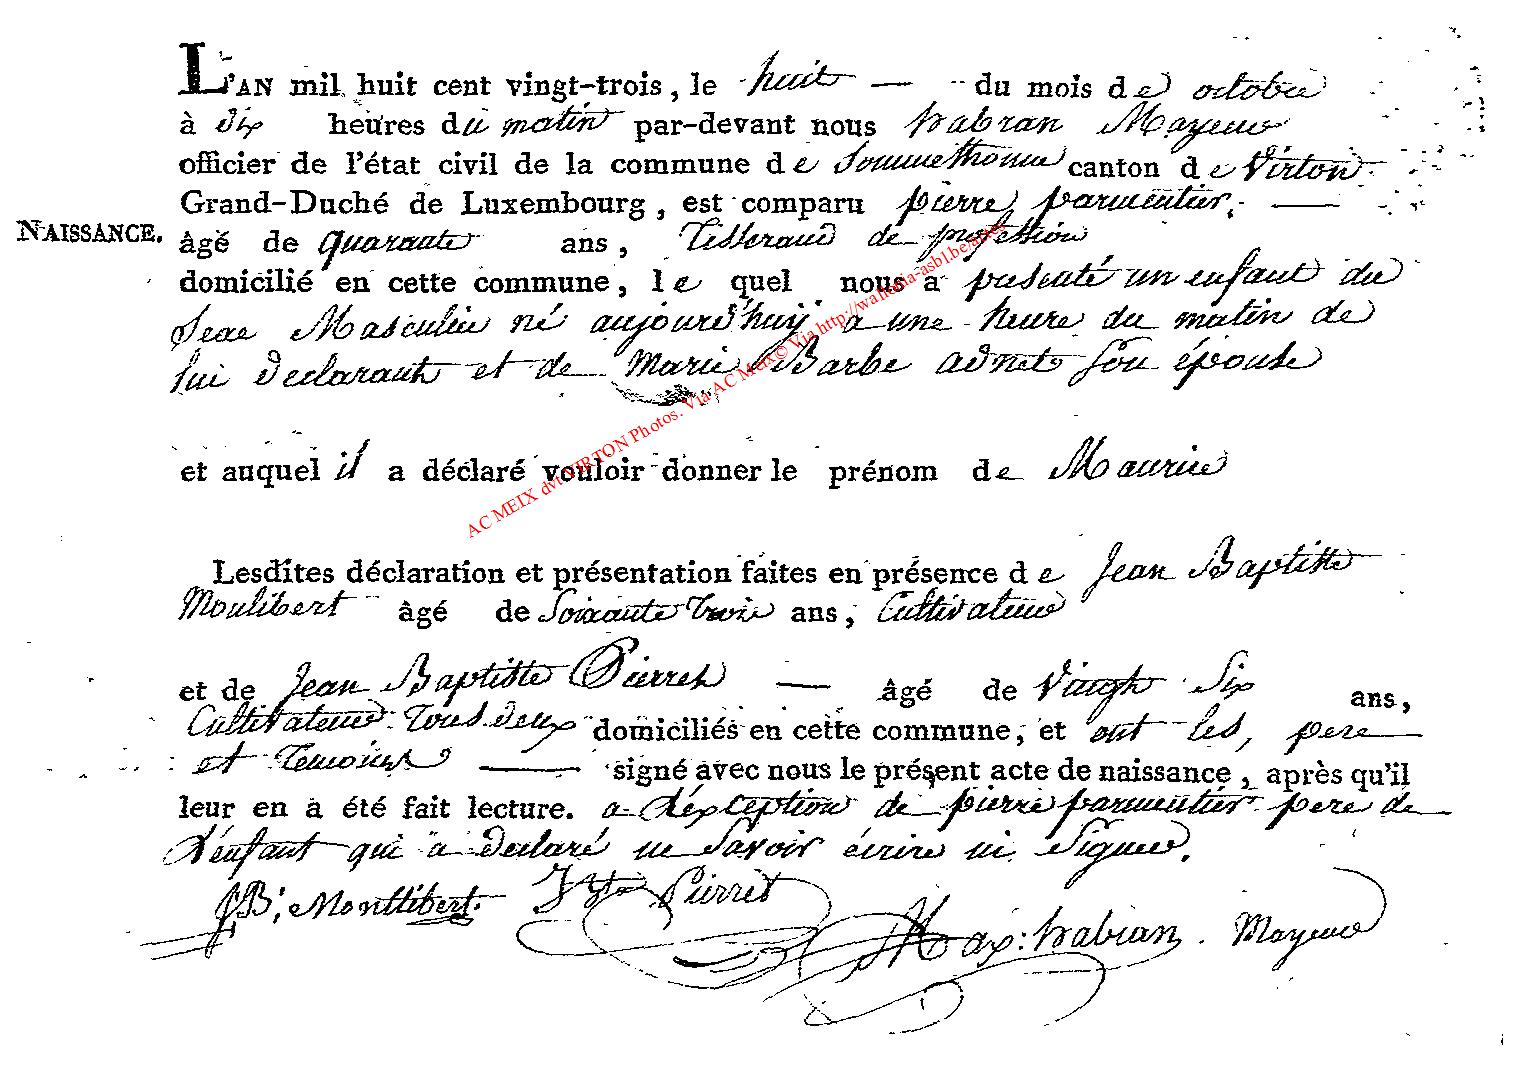 L'AN mil huit cent vingt-trois, le huit — du mois de octobre
à dix heures du matin par-devant nous habran Mayeur
officier de l'état civil de la commune de Sommethonne canton de Virton
Grand-Duché de Luxembourg, est comparu pierre parmentier. —
NAISSANCE. âgé de quarante ans, Tisserand de profession
domicilié en cette commune, le quel nous a présenté un enfant du
Sexe Masculin né aujourd'huy a une heure du matin de
lui declarant et de Marie Barbe adnet Son épouse
et auquel il a déclaré vouloir donner le prénom de Maurice
Lesdites déclaration et présentation faites en présence de Jean Baptiste
Monlibert âgé de Soixante Trois ans, Cultivateur
et de Jean Baptiste Pierret — âgé de Vingt Six ans,
Cultivateur Tous deux domiciliés en cette commune, et ont les, pere
et Temoins — signé avec nous le présent acte de naissance, après qu'il
leur en a été fait lecture. a L'exception de pierre parmentier pere de
L'enfant qui a declaré ne Savoir écrire ni Signer.
JB; Montlibert. Pierret
Max: habran. Mayeur
AC MEIX dvt VIRTON Photos. Via AC Meix© Via http://wallonia-asbl.be/actes